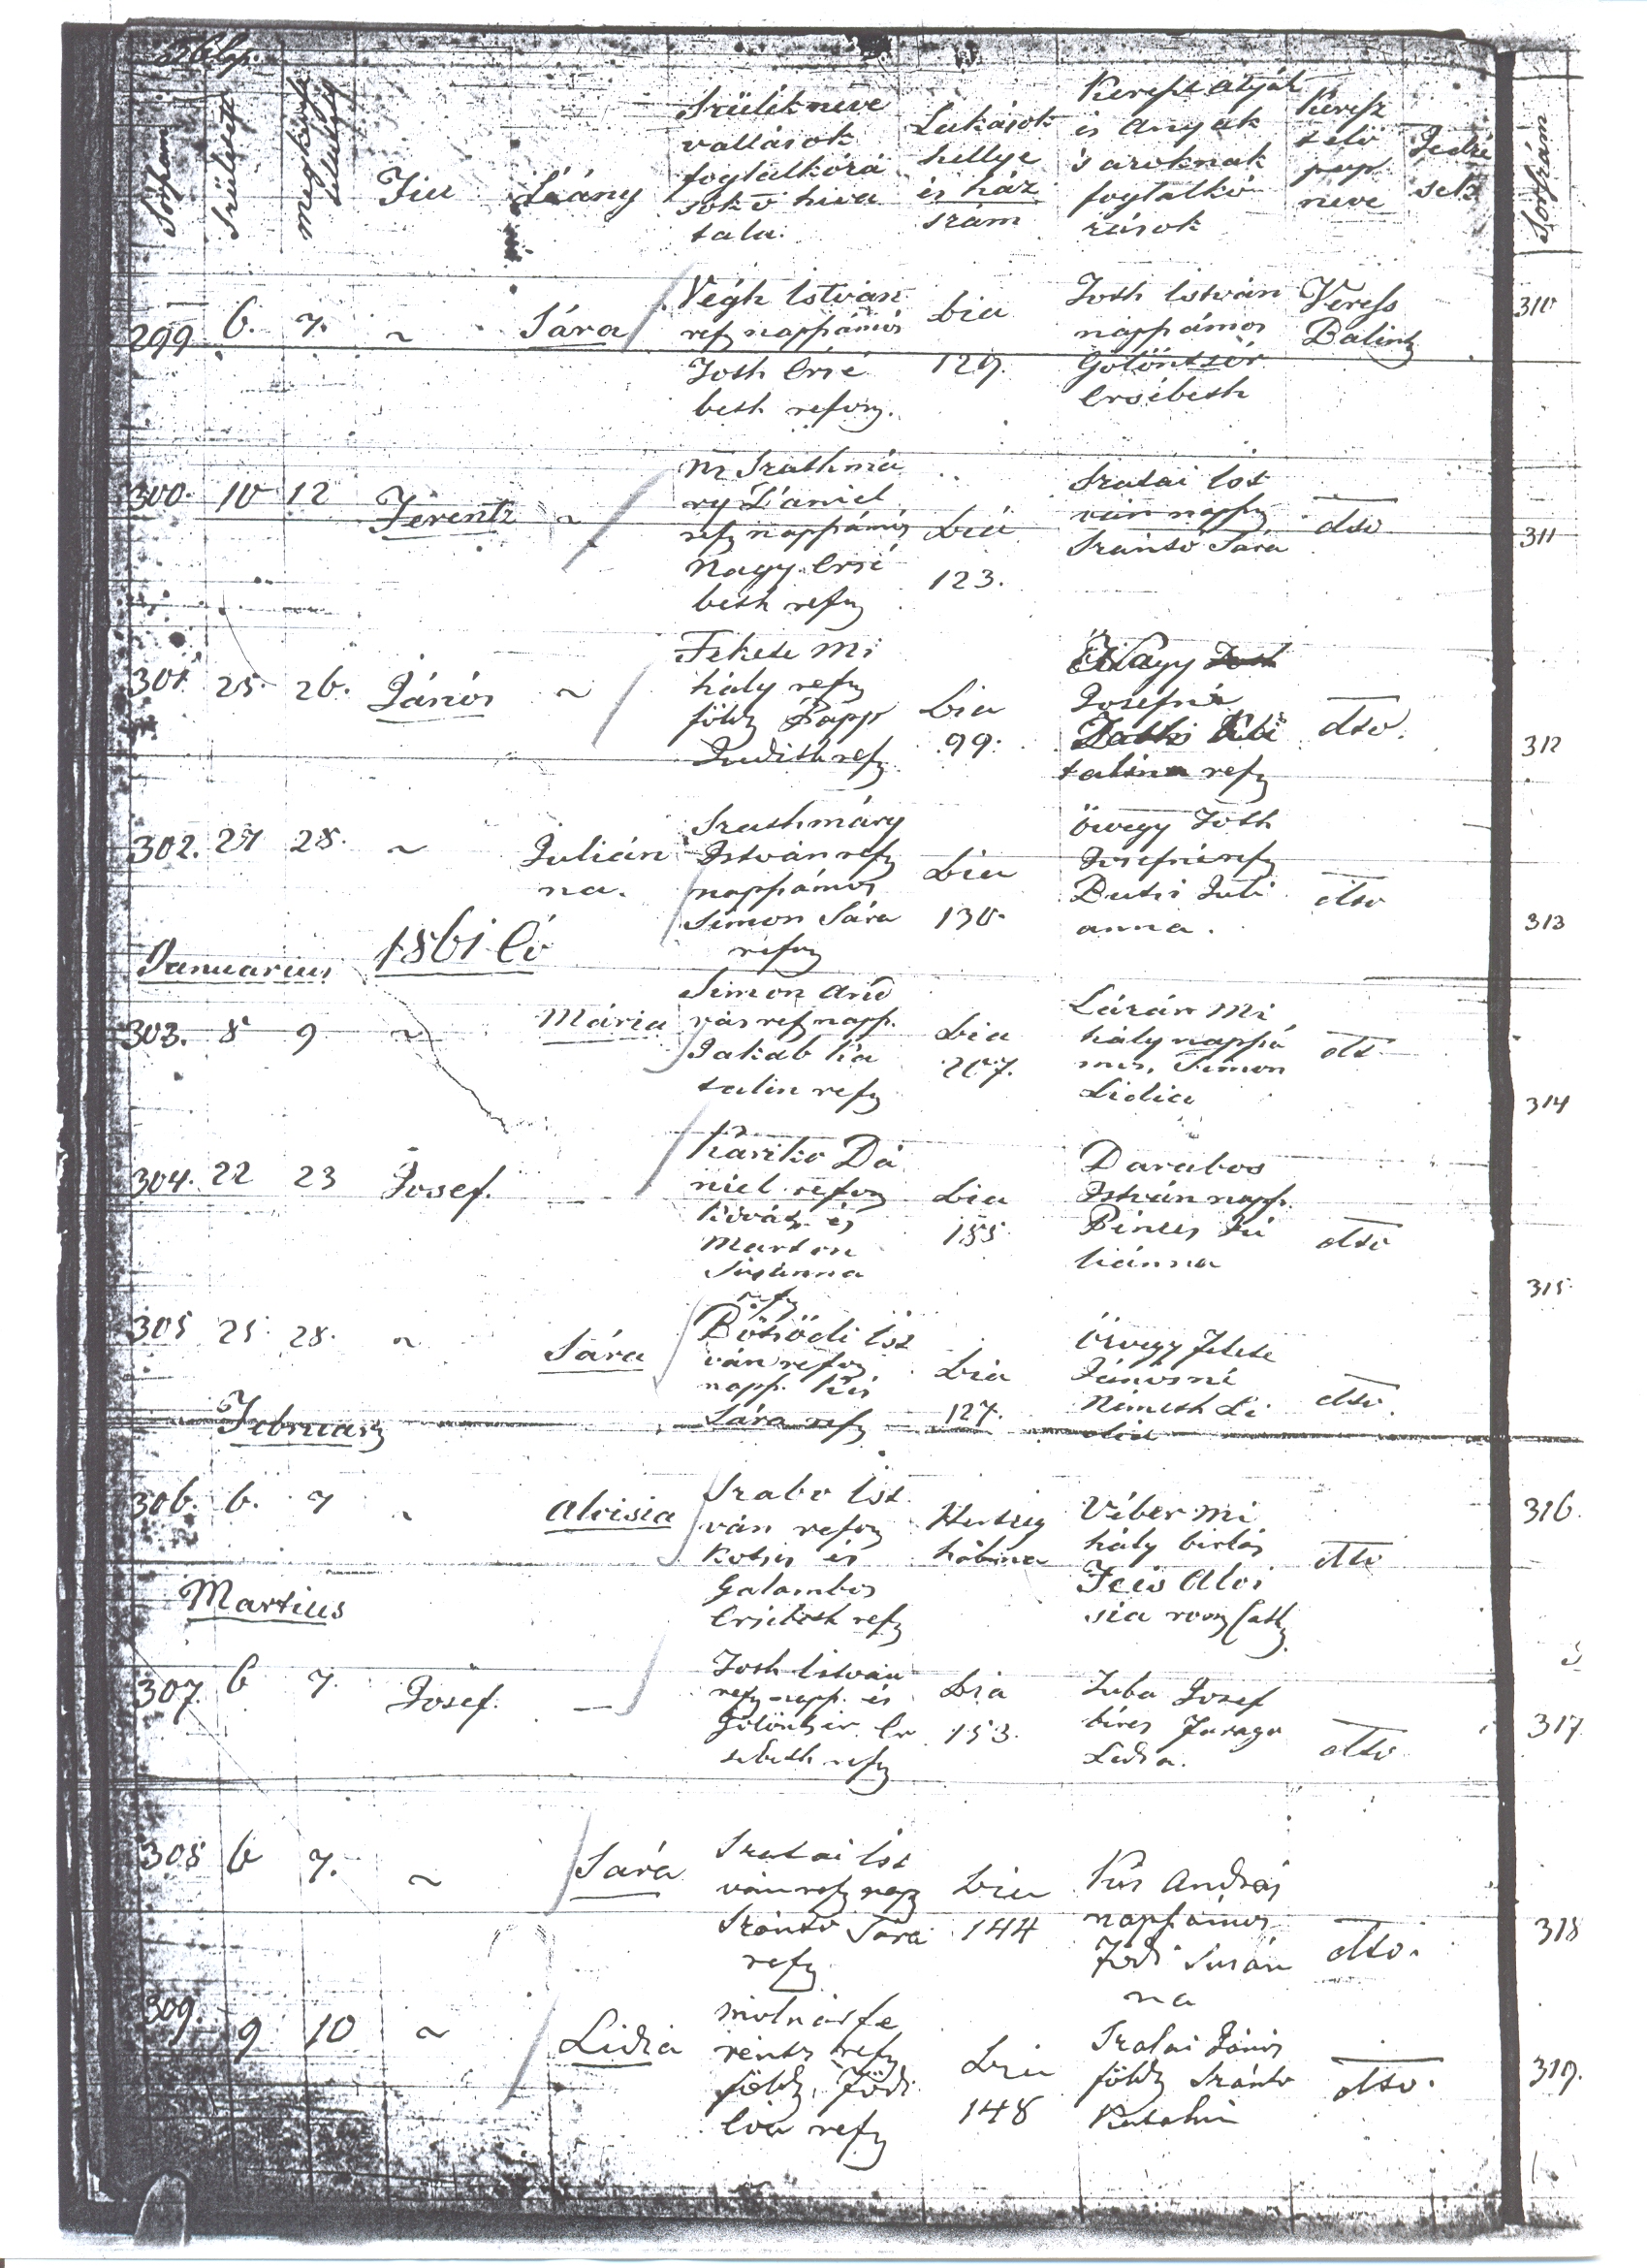 Sorszám
született
Fiu
Leány
Szülék neve
vallások
foglalkozá
sok s hiva
tala.
Lakások
hellye
és ház
szám
Kereszt atyják
és Anyák
s azoknak
foglalko
zások
Keresz
telő
pap
neve
Jedzé
sek
Sorszám
299 6. 7. ~ Sára
Végh István
ref napszámos
Toth Ersé
beth refor.
bia
129.
Toth István
napszámos
Gölöntsér
Ersébeth
Veress
Balint
310
300. 10 12 Ferentz ~
Szathmá
ry Dániel
ref napszámos
Nagy Ersé
beth ref
bia
123.
Szalai Ist
ván napsz
Szántó Sára
dto
311
301 25. 26. János ~
Fekete Mi
hály ref
földm Papp
Judith ref
bia
99.
Nagy
Josefné
talina ref
dto.
312
302. 27 28. ~ Julián
na.
Szathmáry
István ref
napszámos
Simon Sára
ref
bia
130.
Özvegy Toth
Josefné ref
Butsi Juli
anna.
dto
313
Januarius 1861 Év
303. 8 9 ~ Mária
Simon And
rás ref napsz.
Jakab Ka
talin ref
bia
207.
Lázár Mi
hály napszá
mos, Simon
Lidia
dto
314
304. 22 23 Josef. —
Karikó Dá
niel refor
Kovács és
Marton
Susánna
ref
bia
155
Darabos
István napsz.
Pintes Ju
liánna
dto
315
305 25 28. ~ Sára
Bötsödi Ist
ván refor
napsz. Kis
Sára ref
bia
127.
Özvegy Fekete
Jánosné
Németh Li
dia
dto.
Február
306. 6. 7 ~ Aloisia
Szabo Ist
ván refor
Kotsis és
Galambos
Ersébeth ref
Hertzeg
halma
Véber Mi
hály birkás
Feis Aloi
sia rom Cath
dto
316
Martius
307. 6 7. Josef. —
Toth István
ref napsz. és
Gölöntsér Er
sébeth ref
bia
153.
Juba Josef
béres Farago
Lidia.
dto
317
308 6 7. ~ Sára
Szalai Ist
ván ref nap
Szánto Sára
ref
bia
144
Kis András
napszámos
Födi Susán
na
dto.
318
309. 9 10 ~ Lidia
Molnár Fe
rentz ref
földm. Födi
Éva ref
bia
148
Szalai János
földm Szánto
Katalin
dto.
319.